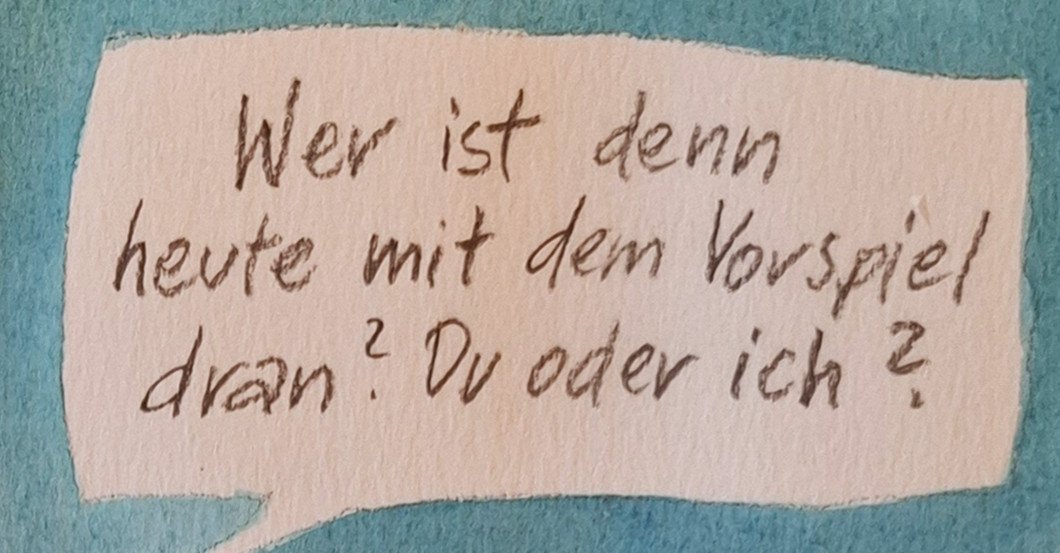 Wer ist denn
heute mit dem Vorspiel
dran? Du oder ich?